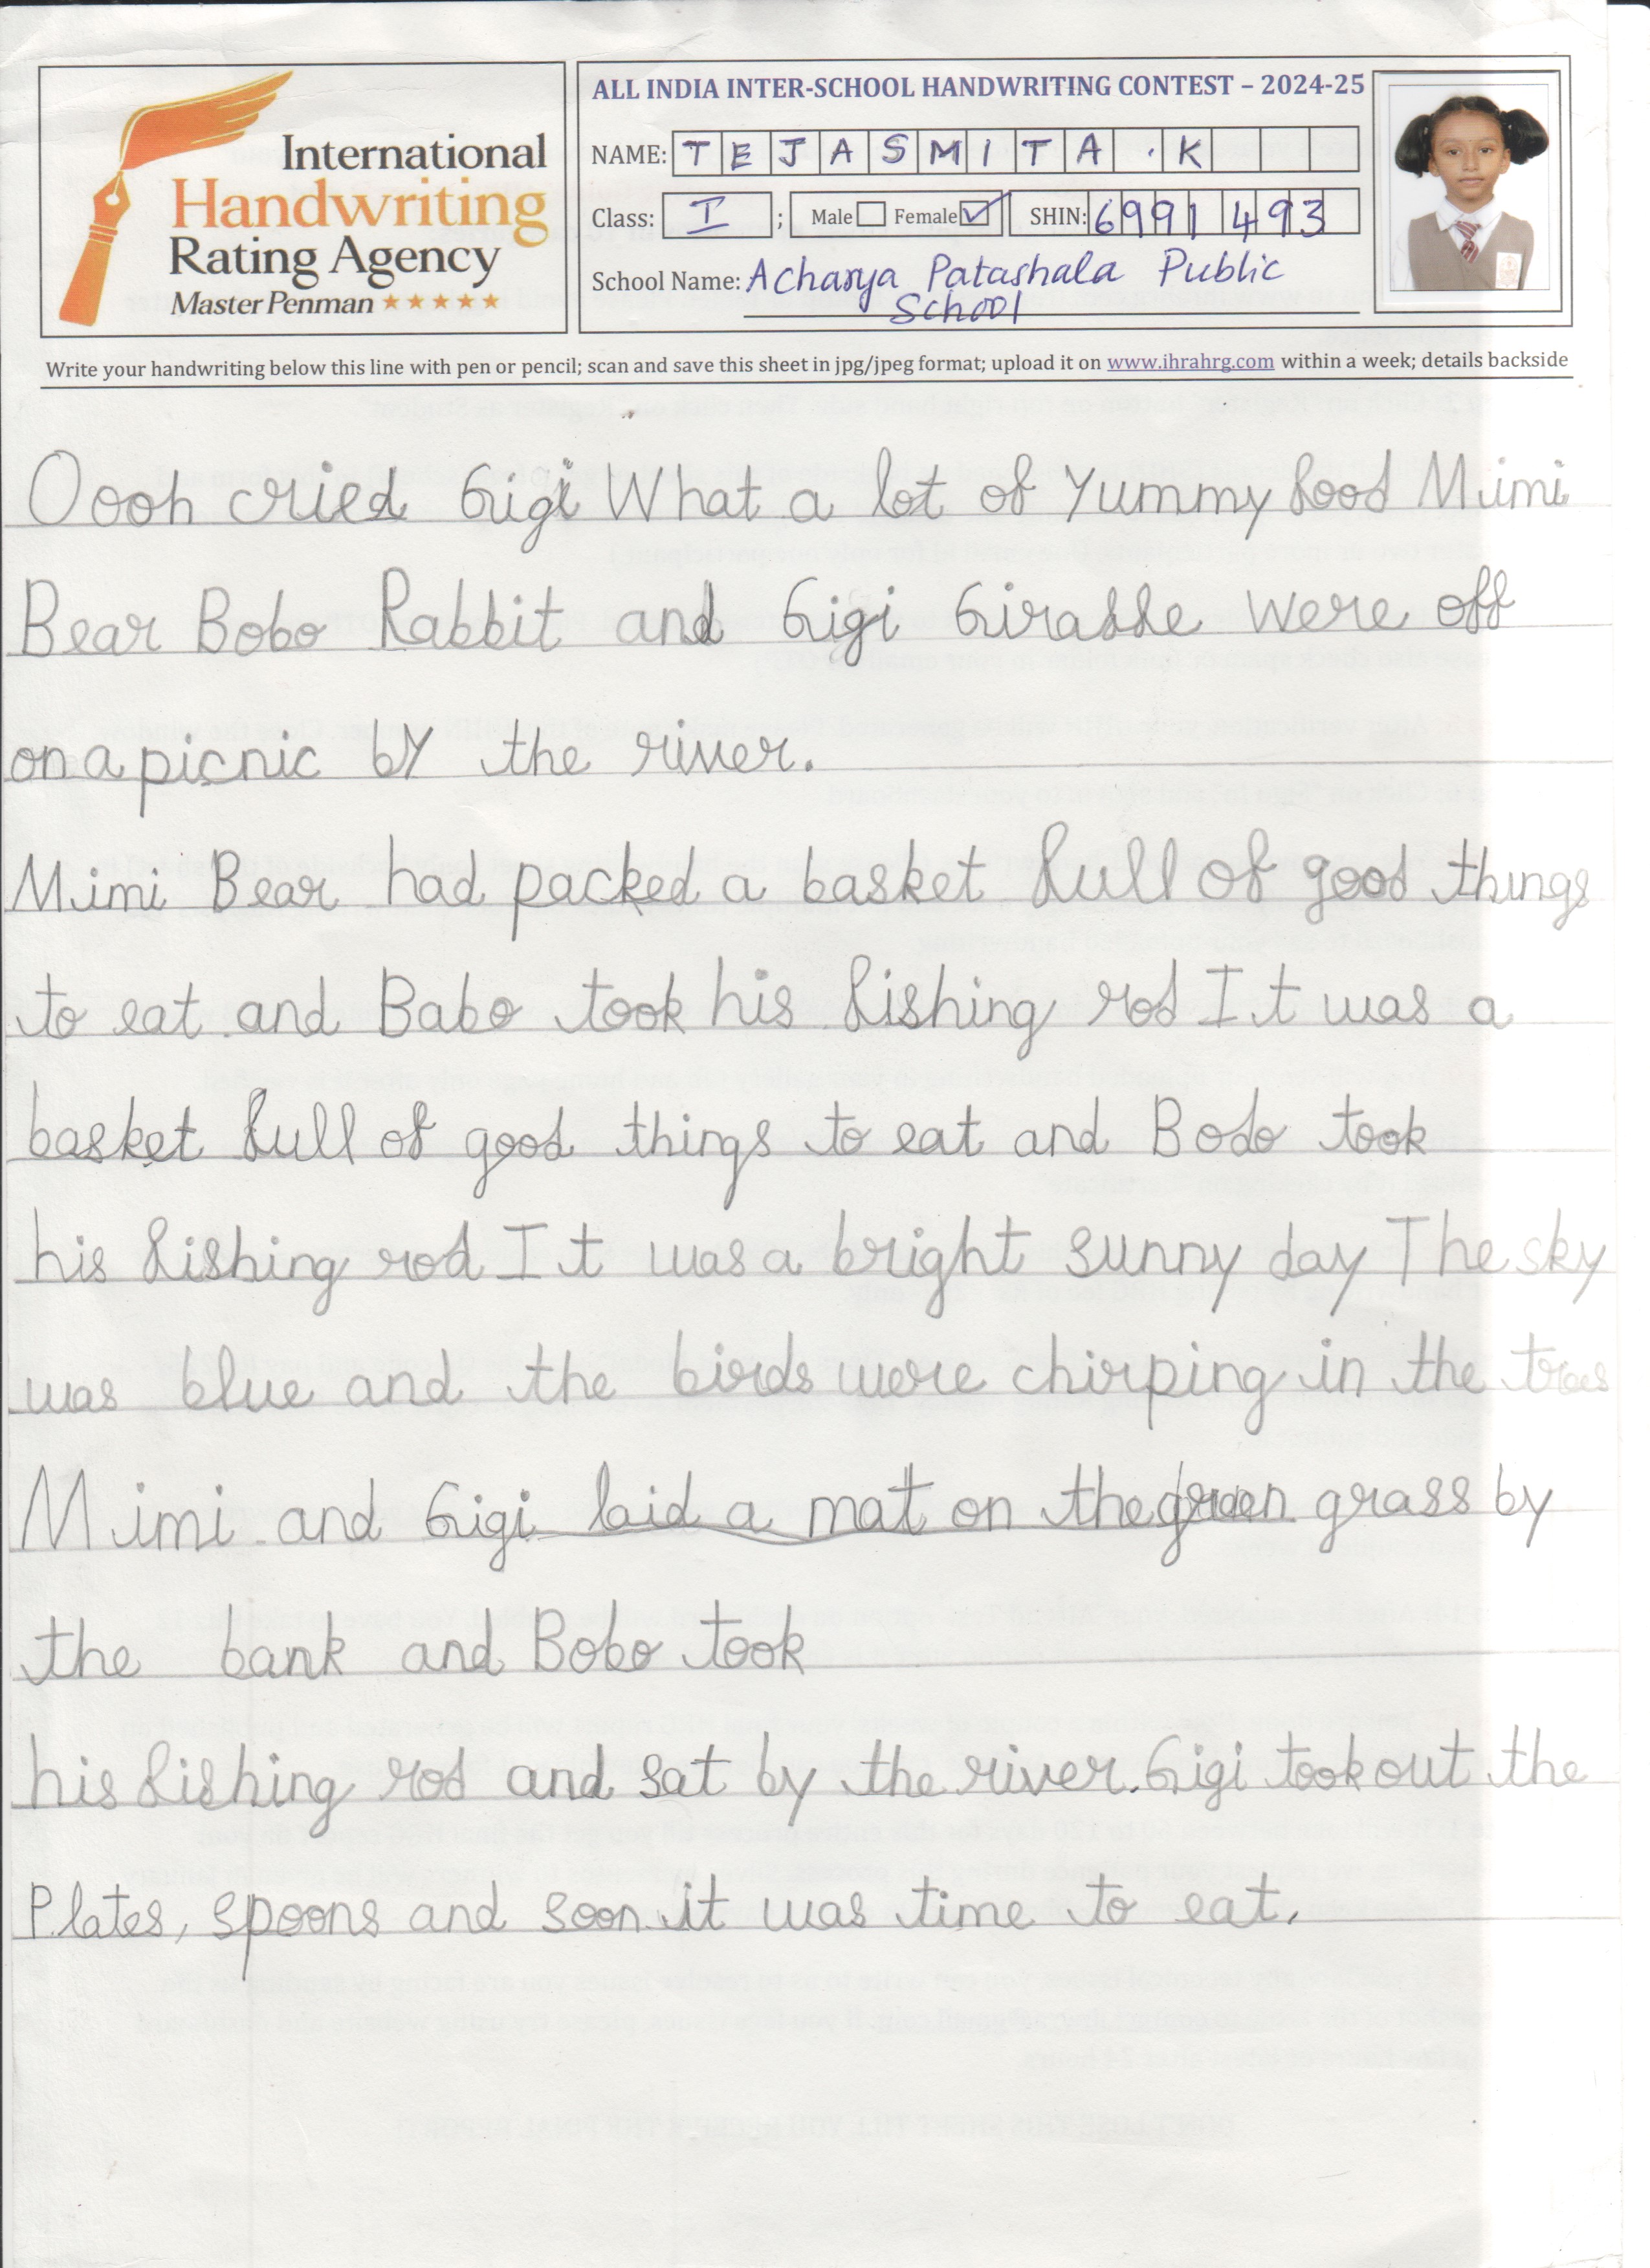 International
Handwriting
Rating Agency
Master Penman
ALL INDIA INTER-SCHOOL HANDWRITING CONTEST – 2024-25
NAME: TEJASMITA.K
Class: I ; Male Female SHIN: 6991493
School Name: Acharya Patashala Public
School
Write your handwriting below this line with pen or pencil; scan and save this sheet in jpg/jpeg format; upload it on www.ihrahrg.com within a week; details backside
Oooh cried Gigi What a lot of Yummy food Mimi
Bear Bobo Rabbit and Gigi Giraffe were off
on a picnic bY the river.
Mimi Bear had packed a basket full of good things
to eat and Babo took his fishing rod It was a
basket full of good things to eat and Bodo took
his fishing rod It was a bright sunny day The sky
was blue and the birds were chirping in the trees
Mimi and Gigi laid a mat on the green grass by
the bank and Bobo took
his fishing rod and sat by the river. Gigi took out the
Plates, spoons and soon it was time to eat.